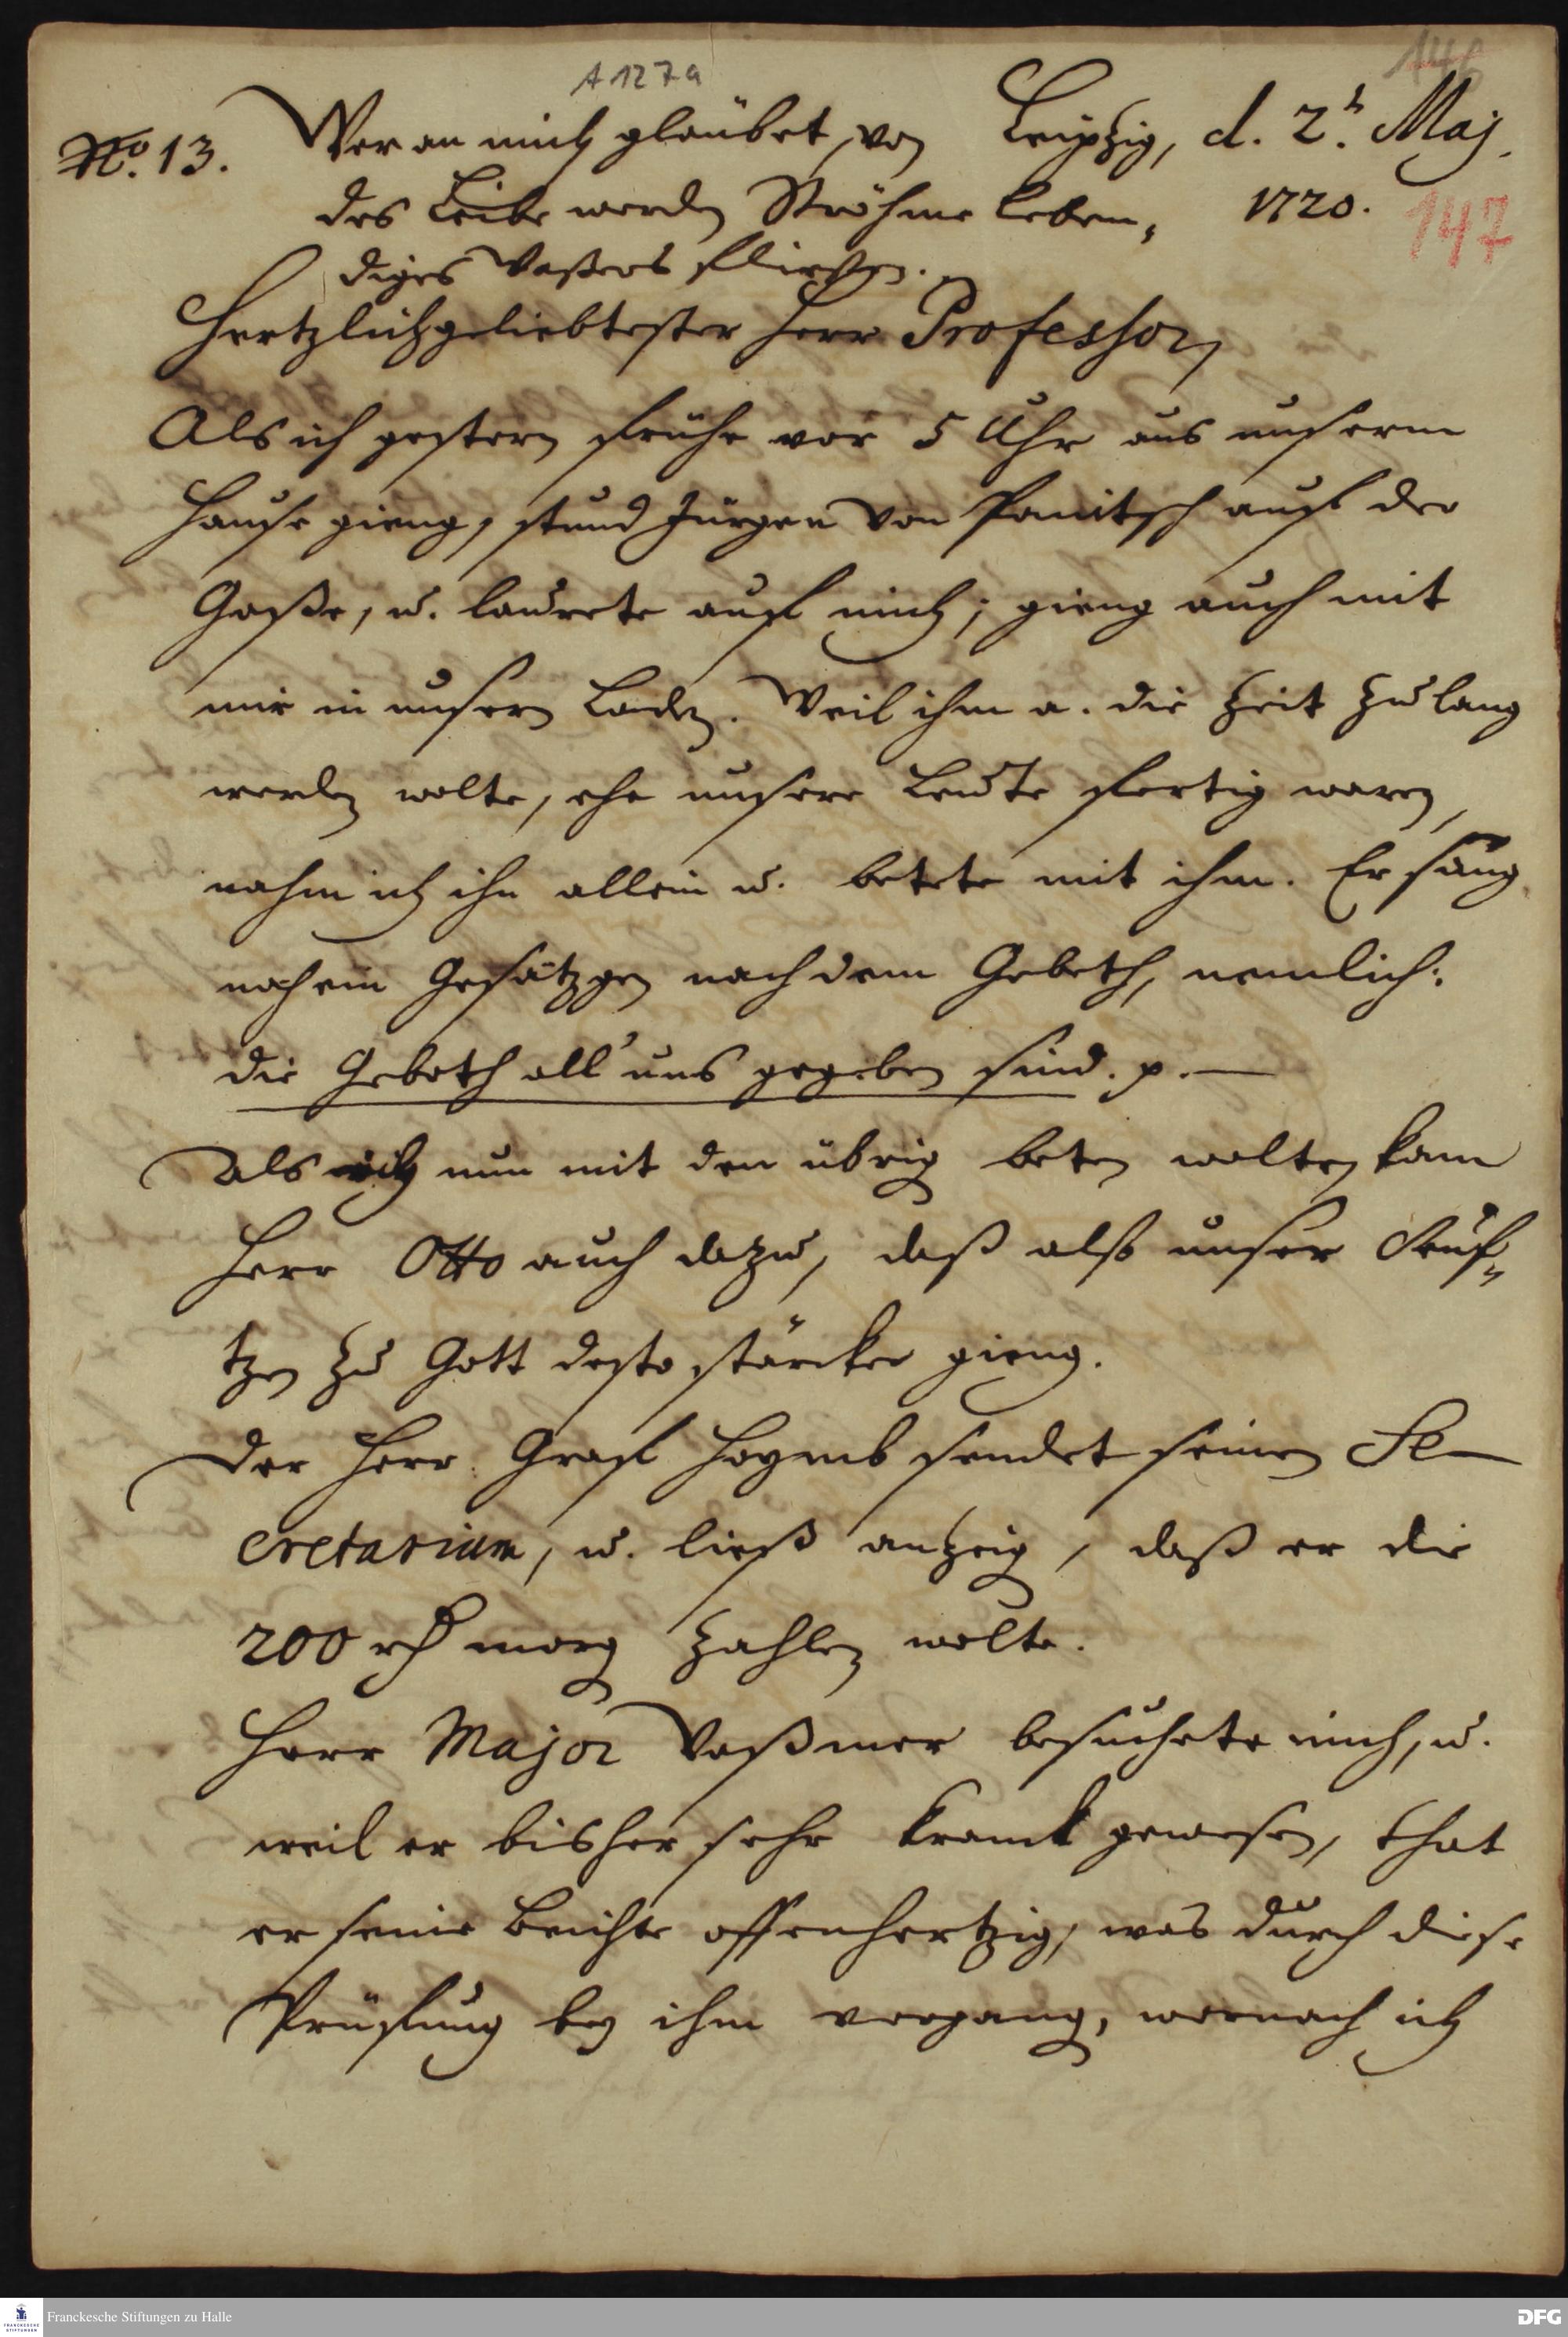 A 127a
146
No. 13. Wer an mich glaubet, von Leipzig, d. 2t. Maj.
des Leibe werden Ströhme leben, 1720.
147
diges Waßers fließen.
Hertzlichgeliebtester Herr Professor,
Als ich gestern frühe vor 5 Uhr aus unserm
Hause gieng, stund Jürgen von Panitsch auf der
Gaße, u. laurete auf mich; gieng auch mit
mir in unsern Laden. Weil ihm a. die Zeit zu lang
werden wolte, ehe unsere Leute fertig waren,
nahm ich ihn allein u. betete mit ihm. Er sang
noch ein Gesätzgen nach dem Gebeth, nemlich:
die Geboth all' uns gegeben sind. p. —
Als ich nun mit den übrig beten wolten kam
Herr Otto auch dazu, daß alß unser Seuf,
tzen zu Gott desto stärcker gieng.
Der Herr Graf Hoymb sendet seinen Se-
cretarium, u. ließ anzeig, daß er die
200 rh morg zahlen wolte.
Herr Major Vaßmer besuchete mich, u.
weil er bisher sehr kranck gewesen, that
er seine Beichte offenhertzig, was durch diese
Prüfung bey ihm vorgang, wornach ich
Franckesche Stiftungen zu Halle
FRANCKESCHE STIFTUNGEN
DFG